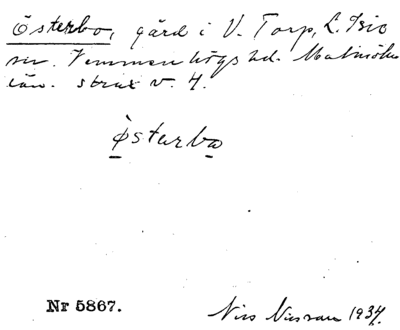 Österbo, gård i V. Torp, L. Isie
sn. Vemmenhögs hd. Malmöhus
län. strax v. 4.
Österbo
Nr 5867.
Nils Nilsson 1934.